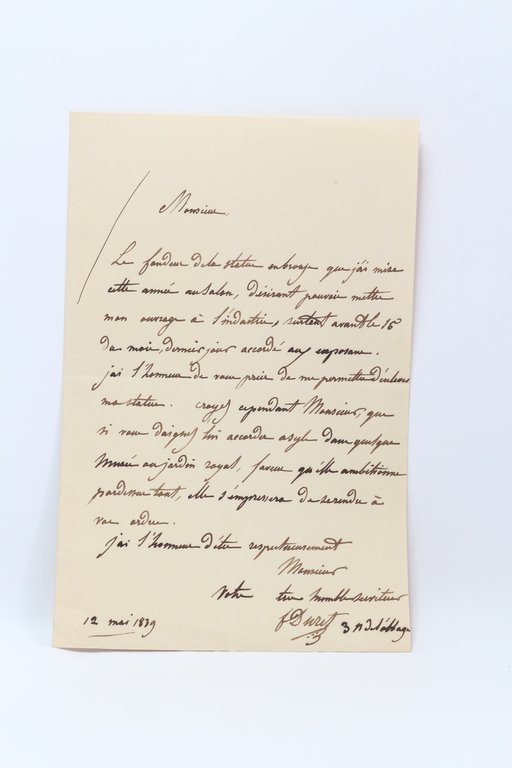 Monsieur,
Le fondeur de la statue en bronze que j'ai mise
cette année au Salon, désirant pouvoir mettre
mon ouvrage à l'industrie, surtout avant le 15
du mois, dernier jour accordé aux exposans.
j'ai l'honneur de vous prier de me permettre d'enlever
ma statue. croyez cependant Monsieur, que
si vous daignez lui accorder asyle dans quelque
Musée ou jardin royal, faveur qu'elle ambitionne
pardessus tout, elle s'empressera de se rendre à
vos ordres.
j'ai l'honneur d'être respectueusement
Monsieur
Votre très humble serviteur
12 mai 1839 f Duret 3 r de l'abbaye